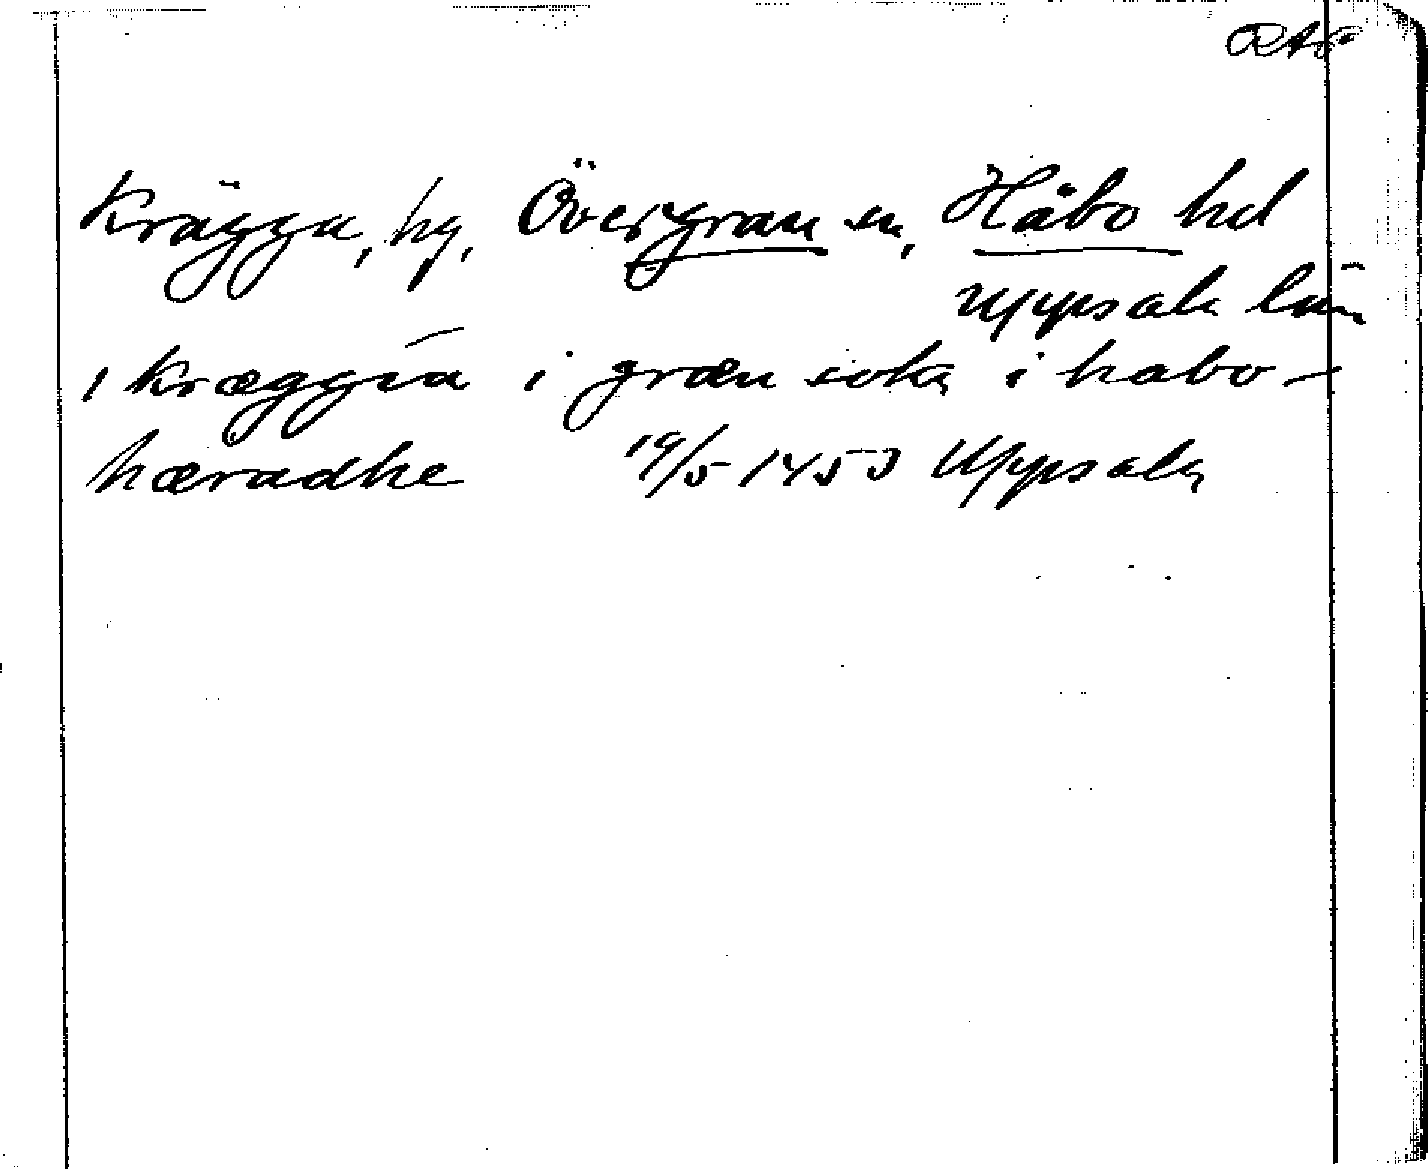 RAP
Krägga, hg, Övergran sn, Håbo hd
Uppsala län
i kræggia i græn sokn i habo-
hæradhe 19/5 1453 Uppsala